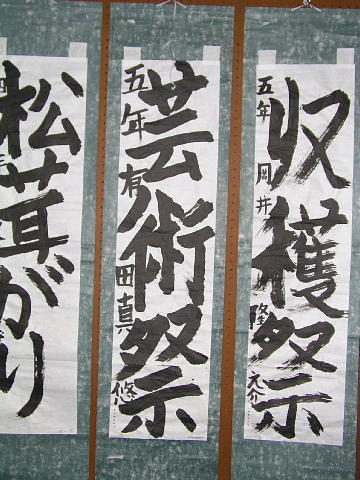 収穫祭
五年 岡井 隆大介
芸術祭
五年 有田真悠
松茸がり